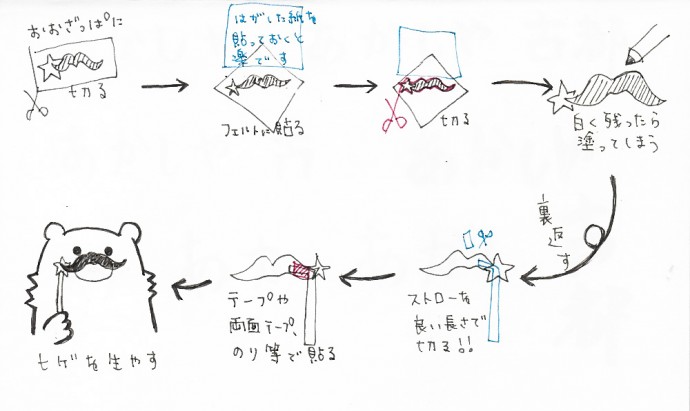 おおざっぱに
切る
はがした紙を
貼っておくと
楽です
フェルトに貼る
切る
白く残ったら
塗ってしまう
裏返す
ストローを
良い長さで
切る!!
テープや
両面テープ、
のり等で貼る
ヒゲを生やす